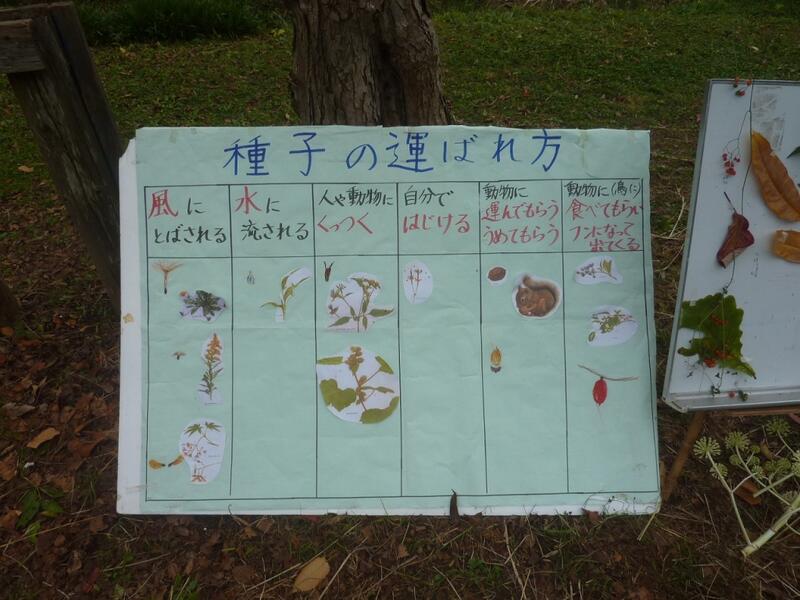 種子の運ばれ方
風に
とばされる
水に
流される
人や動物に
くっつく
自分で
はじける
動物に
運んでもらう
うめてもらう
動物に(鳥に)
食べてもらい
フンになって
出てくる